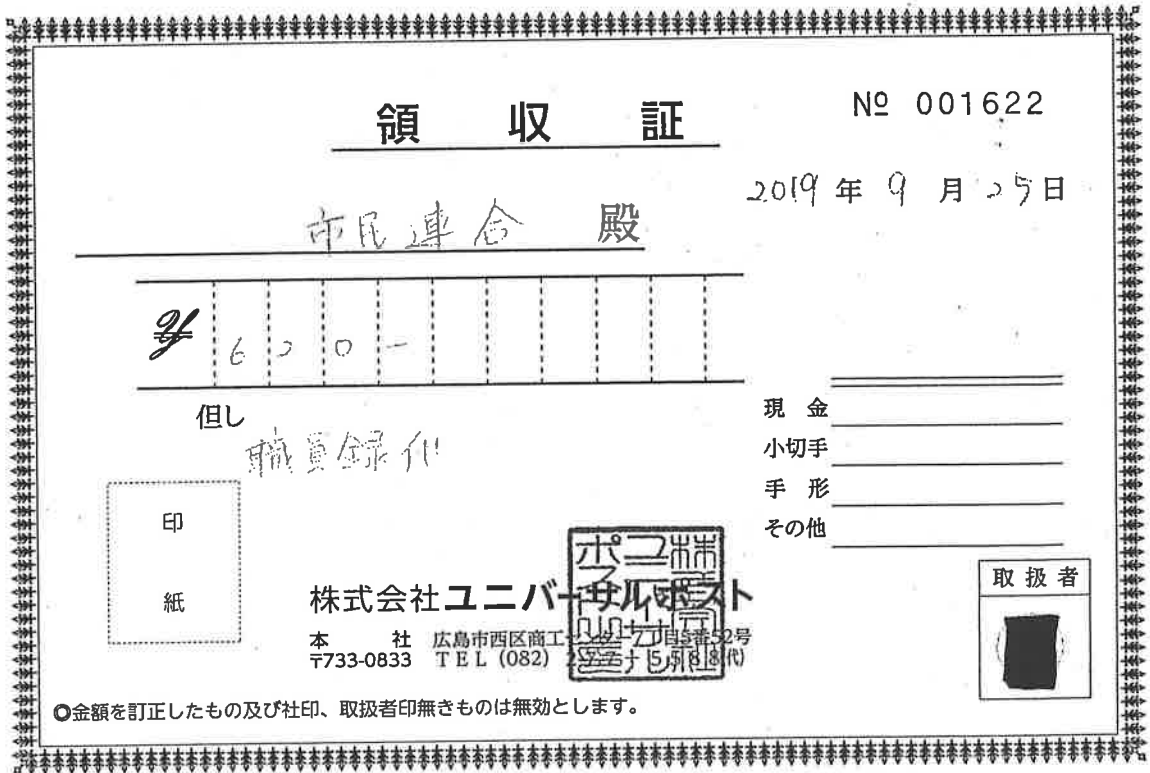 領収証
№ 001622
2019年9月25日
市民連合 殿
¥620-
但し
職員録代
現金
小切手
手形
その他
印
紙
株式会社ユニバーサルポスト
本社 広島市西区商工センター7丁目5番52号
〒733-0833 TEL (082) 277-5588(代)
取扱者
◎金額を訂正したもの及び社印、取扱者印無きものは無効とします。